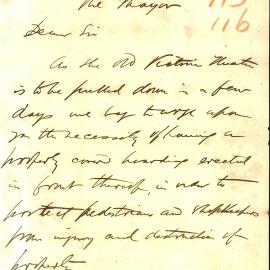 The Mayor
115
116
Dear Sir
As the old Victoria Theatre
is to be pulled down in a few
days we beg to urge upon
you the necessity of having a
properly cov'd hoarding erected
in front thereof, in order to
protect pedestrians and shopkeepers
from injury and destruction of
property